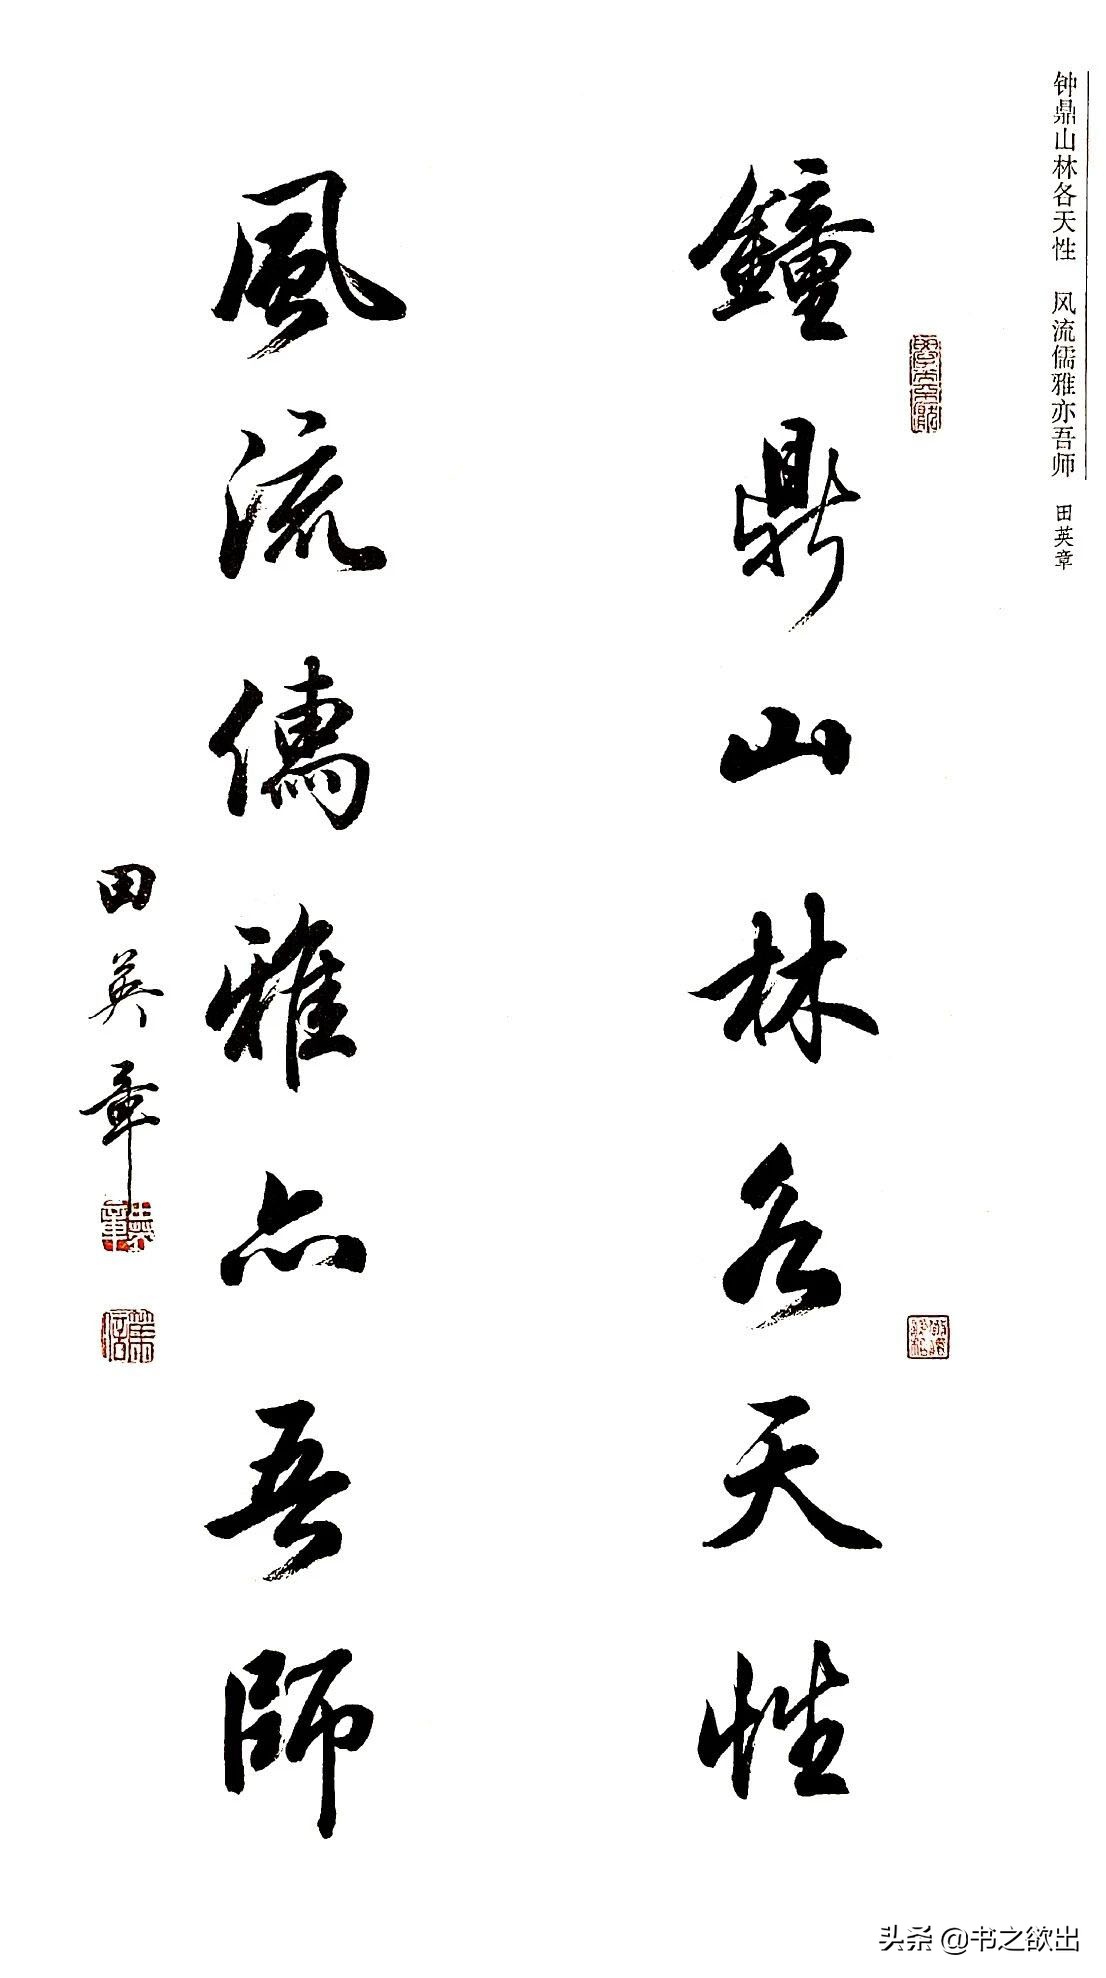 钟鼎山林各天性 风流儒雅亦吾师 田英章
鐘鼎山林各天性
風流儒雅亦吾師
田英章
头条 @书之欲出